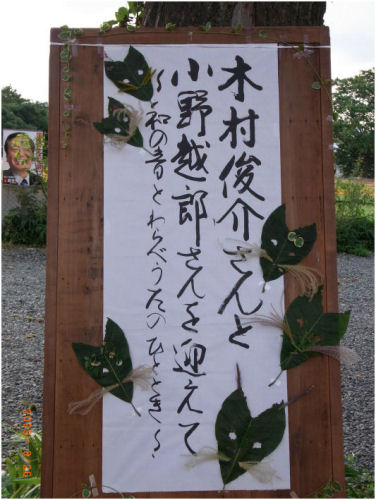 木村俊介さんと
小野越郎さんを迎えて
～和の音とわらべうたのひととき～